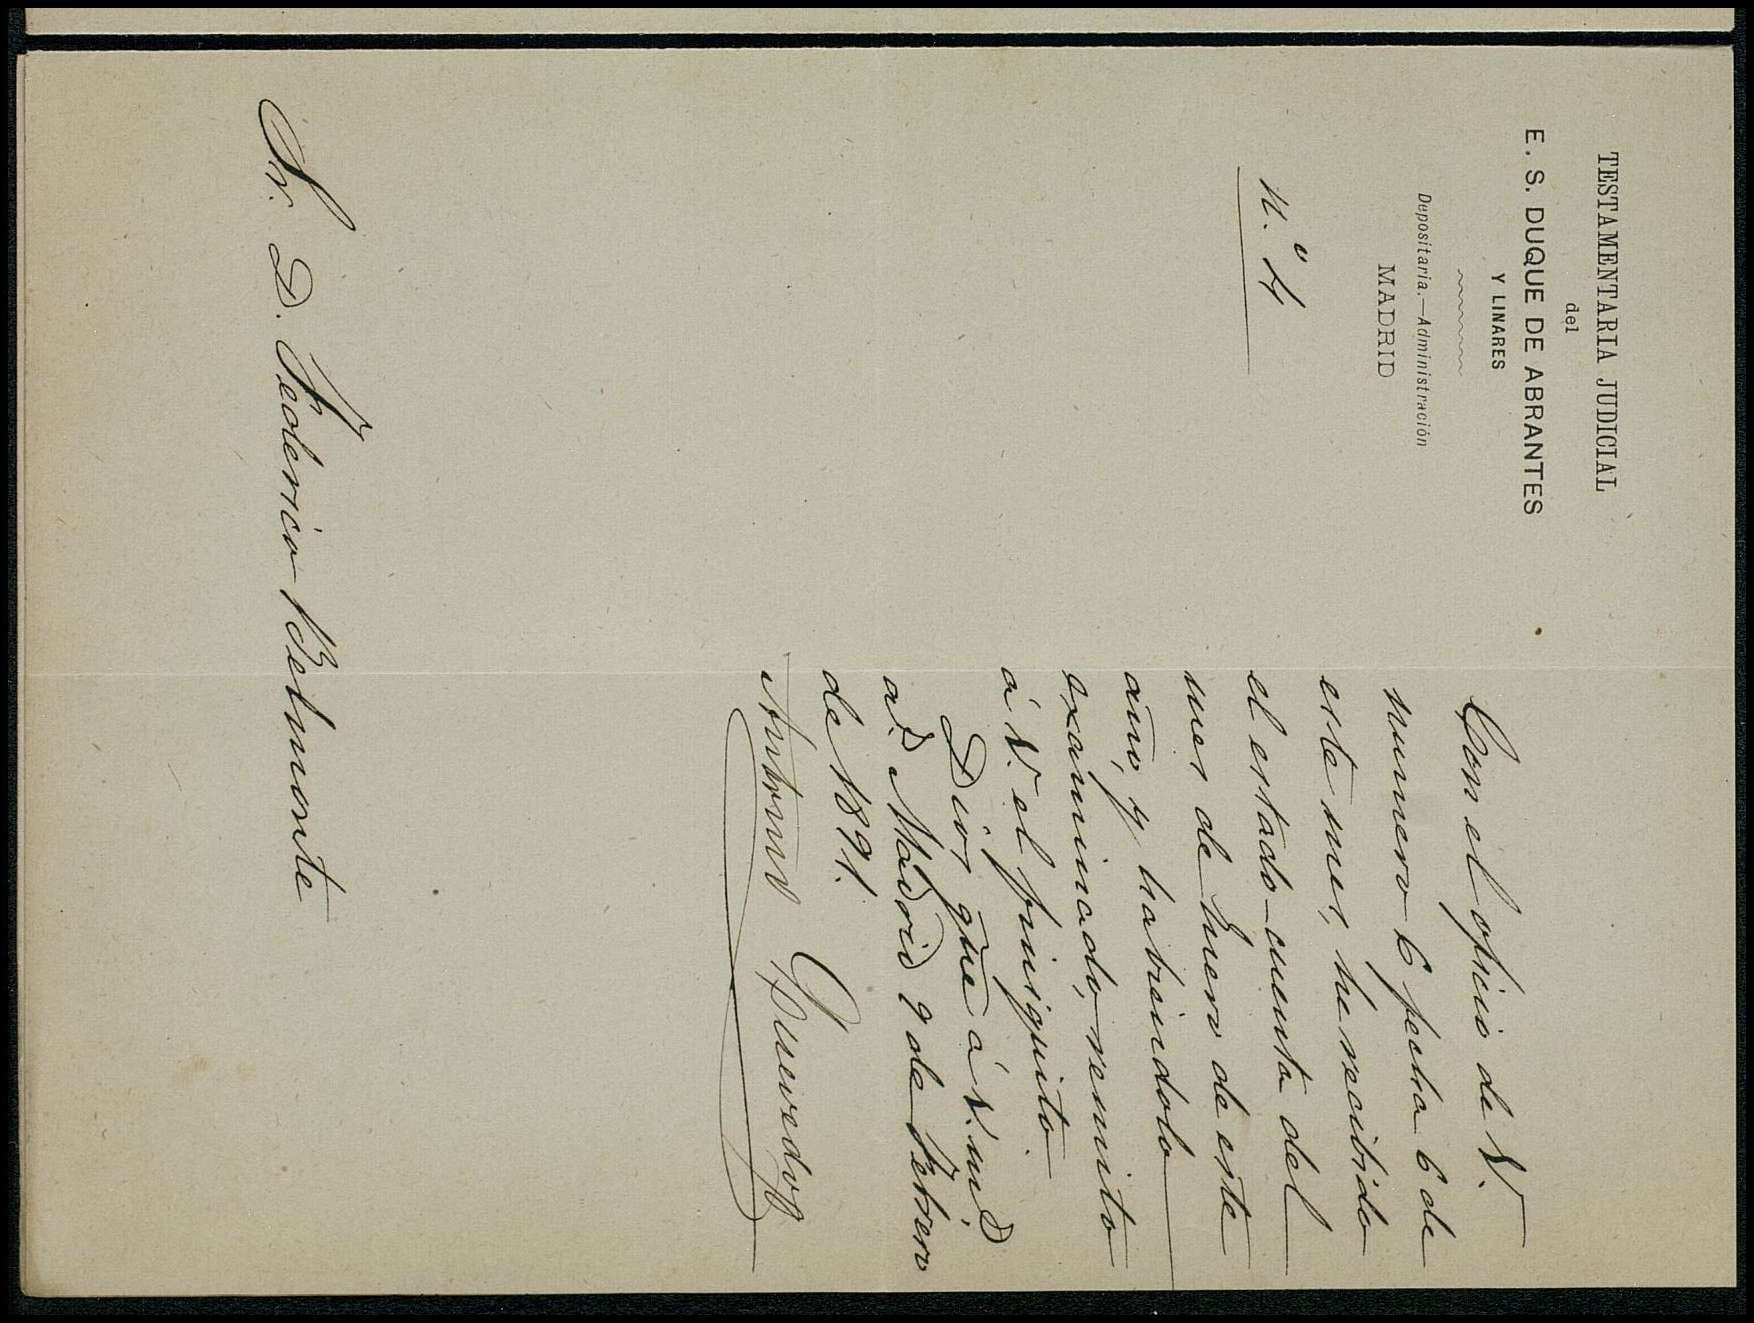 TESTAMENTARIA JUDICIAL
del
E. S. DUQUE DE ABRANTES
Y LINARES
Depositaria.—Administración
MADRID
N.º 4
Con el ofício de V.
numero 6 fecha 6 de
este mes, he recibido
el estado-cuenta del
mes de Enero de este
año, y habiendolo
examinado, remito
á V. el finiquito.
Dios gue á V. m.s
a.s Madrid 9 de Febrero
de 1891.
Antonio Quevedo
Sr. D. Federico Belmonte